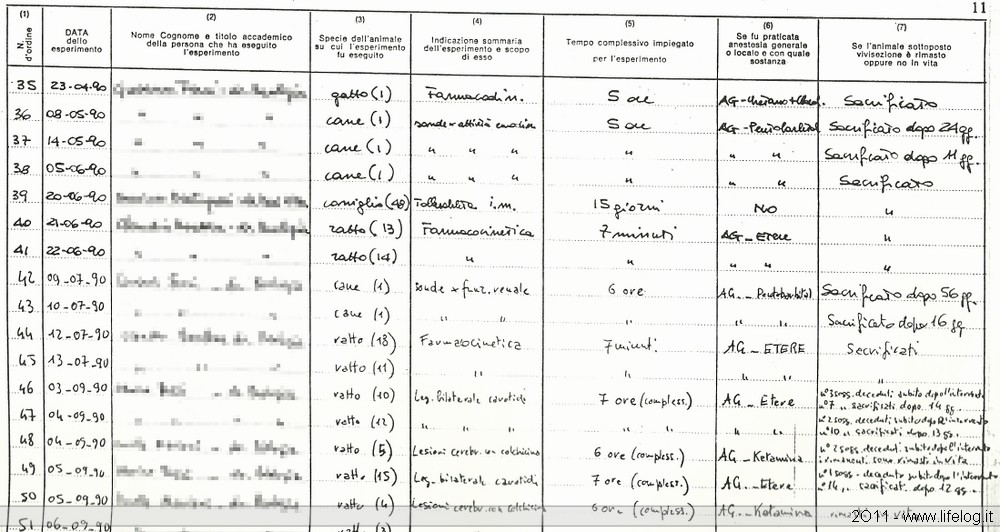 11
(1) (2) (3) (4) (5) (6) (7)
N. d'ordine
DATA dello esperimento
Nome Cognome e titolo accademico della persona che ha eseguito l'esperimento
Specie dell'animale su cui l'esperimento fu eseguito
Indicazione sommaria dell'esperimento e scopo di esso
Tempo complessivo impiegato per l'esperimento
Se fu praticata anestesia generale o locale e con quale sostanza
Se l'animale sottoposto vivisezione è rimasto oppure no in vita
35 23-04-90 gatto (1) Farmacodin. 5 ore AG- Sacrificato
36 08-05-90 " " " cane (1) sonde + attività 5 ore AG- Pentobarbital Sacrificato dopo 24 gg.
37 14-05-90 " " " cane (1) " " " " " " Sacrificato dopo 11 gg.
38 05-06-90 " " " cane (1) " " " " " " Sacrificato
39 20-06-90 coniglio (48) i.m. 15 giorni NO "
40 21-06-90 ratto (13) Farmacocinetica 7 minuti AG- ETERE "
41 22-06-90 " " " ratto (14) " " " " "
42 09-07-90 cane (1) sonde x funz. renale 6 ore AG- Pentobarbital Sacrificato dopo 56 gg.
43 10-07-90 " " " cane (1) " " " " " Sacrificato dopo 16 gg
44 12-07-90 ratto (18) Farmacocinetica 7 minuti AG- ETERE Sacrificati
45 13-07-90 " " " ratto (11) " " " " "
46 03-09-90 ratto (10) Leg. bilaterale carotidi 7 ore (compless.) AG- Etere n° 3 sogg. deceduti subito dopo l'intervento
n° 7 " sacrificati dopo 14 gg.
47 04-09-90 " " " ratto (12) " " " " " " " n° 2 sogg. deceduti subito dopo l'intervento
n° 10 " sacrificati dopo 13 gg.
48 04-09-90 ratto (5) Lesioni cerebr. con colchicina 6 ore (compless.) AG- Ketamina n° 2 sogg. deceduti subito dopo l'intervento
i rimanenti sono rimasti in vita
49 05-09-90 ratto (15) Leg. bilaterale carotidi 7 ore (compless.) AG- Etere n° 1 sogg. deceduto subito dopo l'intervento
n° 14 " sacrificati dopo 12 gg.
50 05-09-90 ratto (4) Lesioni cerebr. con colchicina 6 ore (compless.) AG- Ketamina
51 06-09-90 ratto
2011 - www.lifelog.it